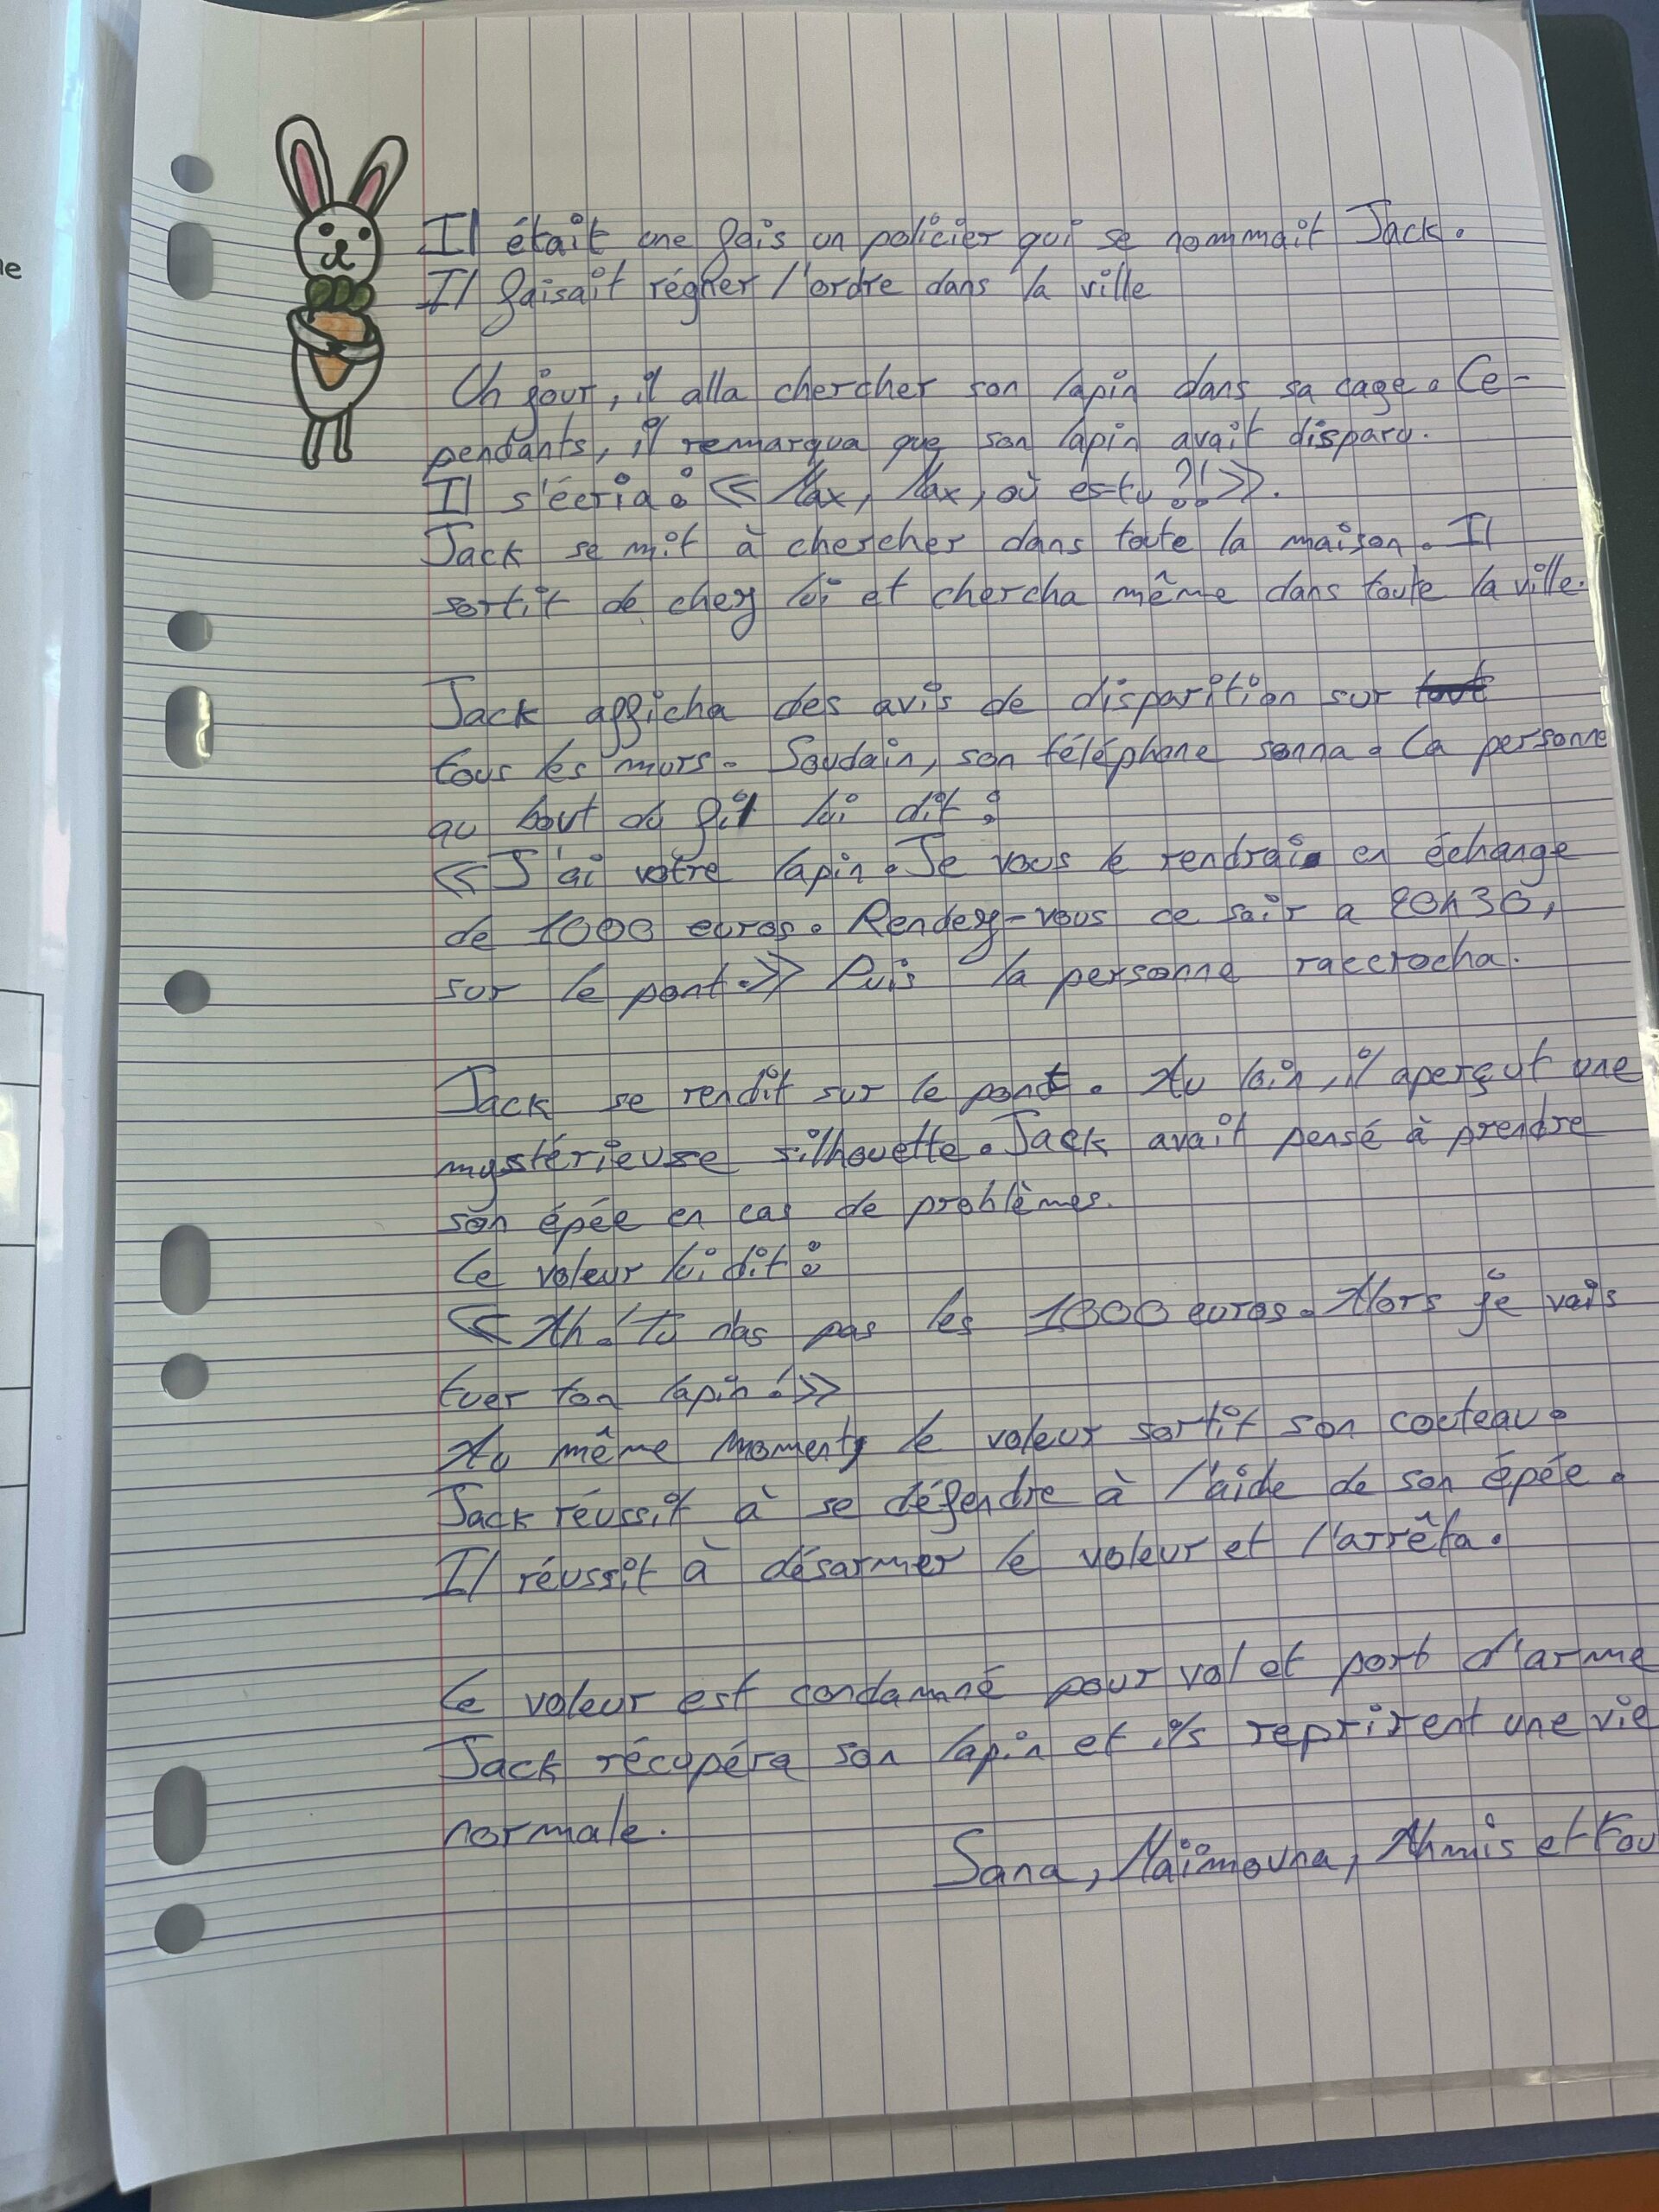 ne
Il était une fois un policier qui se nommait Jack.
Il faisait régner l'ordre dans la ville
Un jour, il alla chercher son lapin dans sa cage. Ce-
pendants, il remarqua que son lapin avait disparu.
Il s'écria : « Max, Max, où es-tu ?! ».
Jack se mit à chercher dans toute la maison. Il
sortit de chez lui et chercha même dans toute la ville.
Jack afficha des avis de disparition sur tout
tous les murs. Soudain, son téléphone sonna. La personne
au bout du fil lui dit :
« J'ai votre lapin. Je vous le rendrai en échange
de 1000 euros. Rendez-vous ce soir a 20h30,
sur le pont. » Puis la personne raccrocha.
Jack se rendit sur le pont. Au loin, il aperçut une
mystérieuse silhouette. Jack avait pensé à prendre
son épée en cas de problèmes.
Le voleur lui dit :
« Ah ! Tu n'as pas les 1000 euros. Alors je vais
tuer ton lapin ! »
Au même moment, le voleur sortit son couteau.
Jack réussit à se défendre à l'aide de son épée.
Il réussit à désarmer le voleur et l'arrêta.
Le voleur est condamné pour vol et port d'arme
Jack récupéra son lapin et ils reprirent une vie
normale.
Sana, Maimouna, Ahmis et Fou